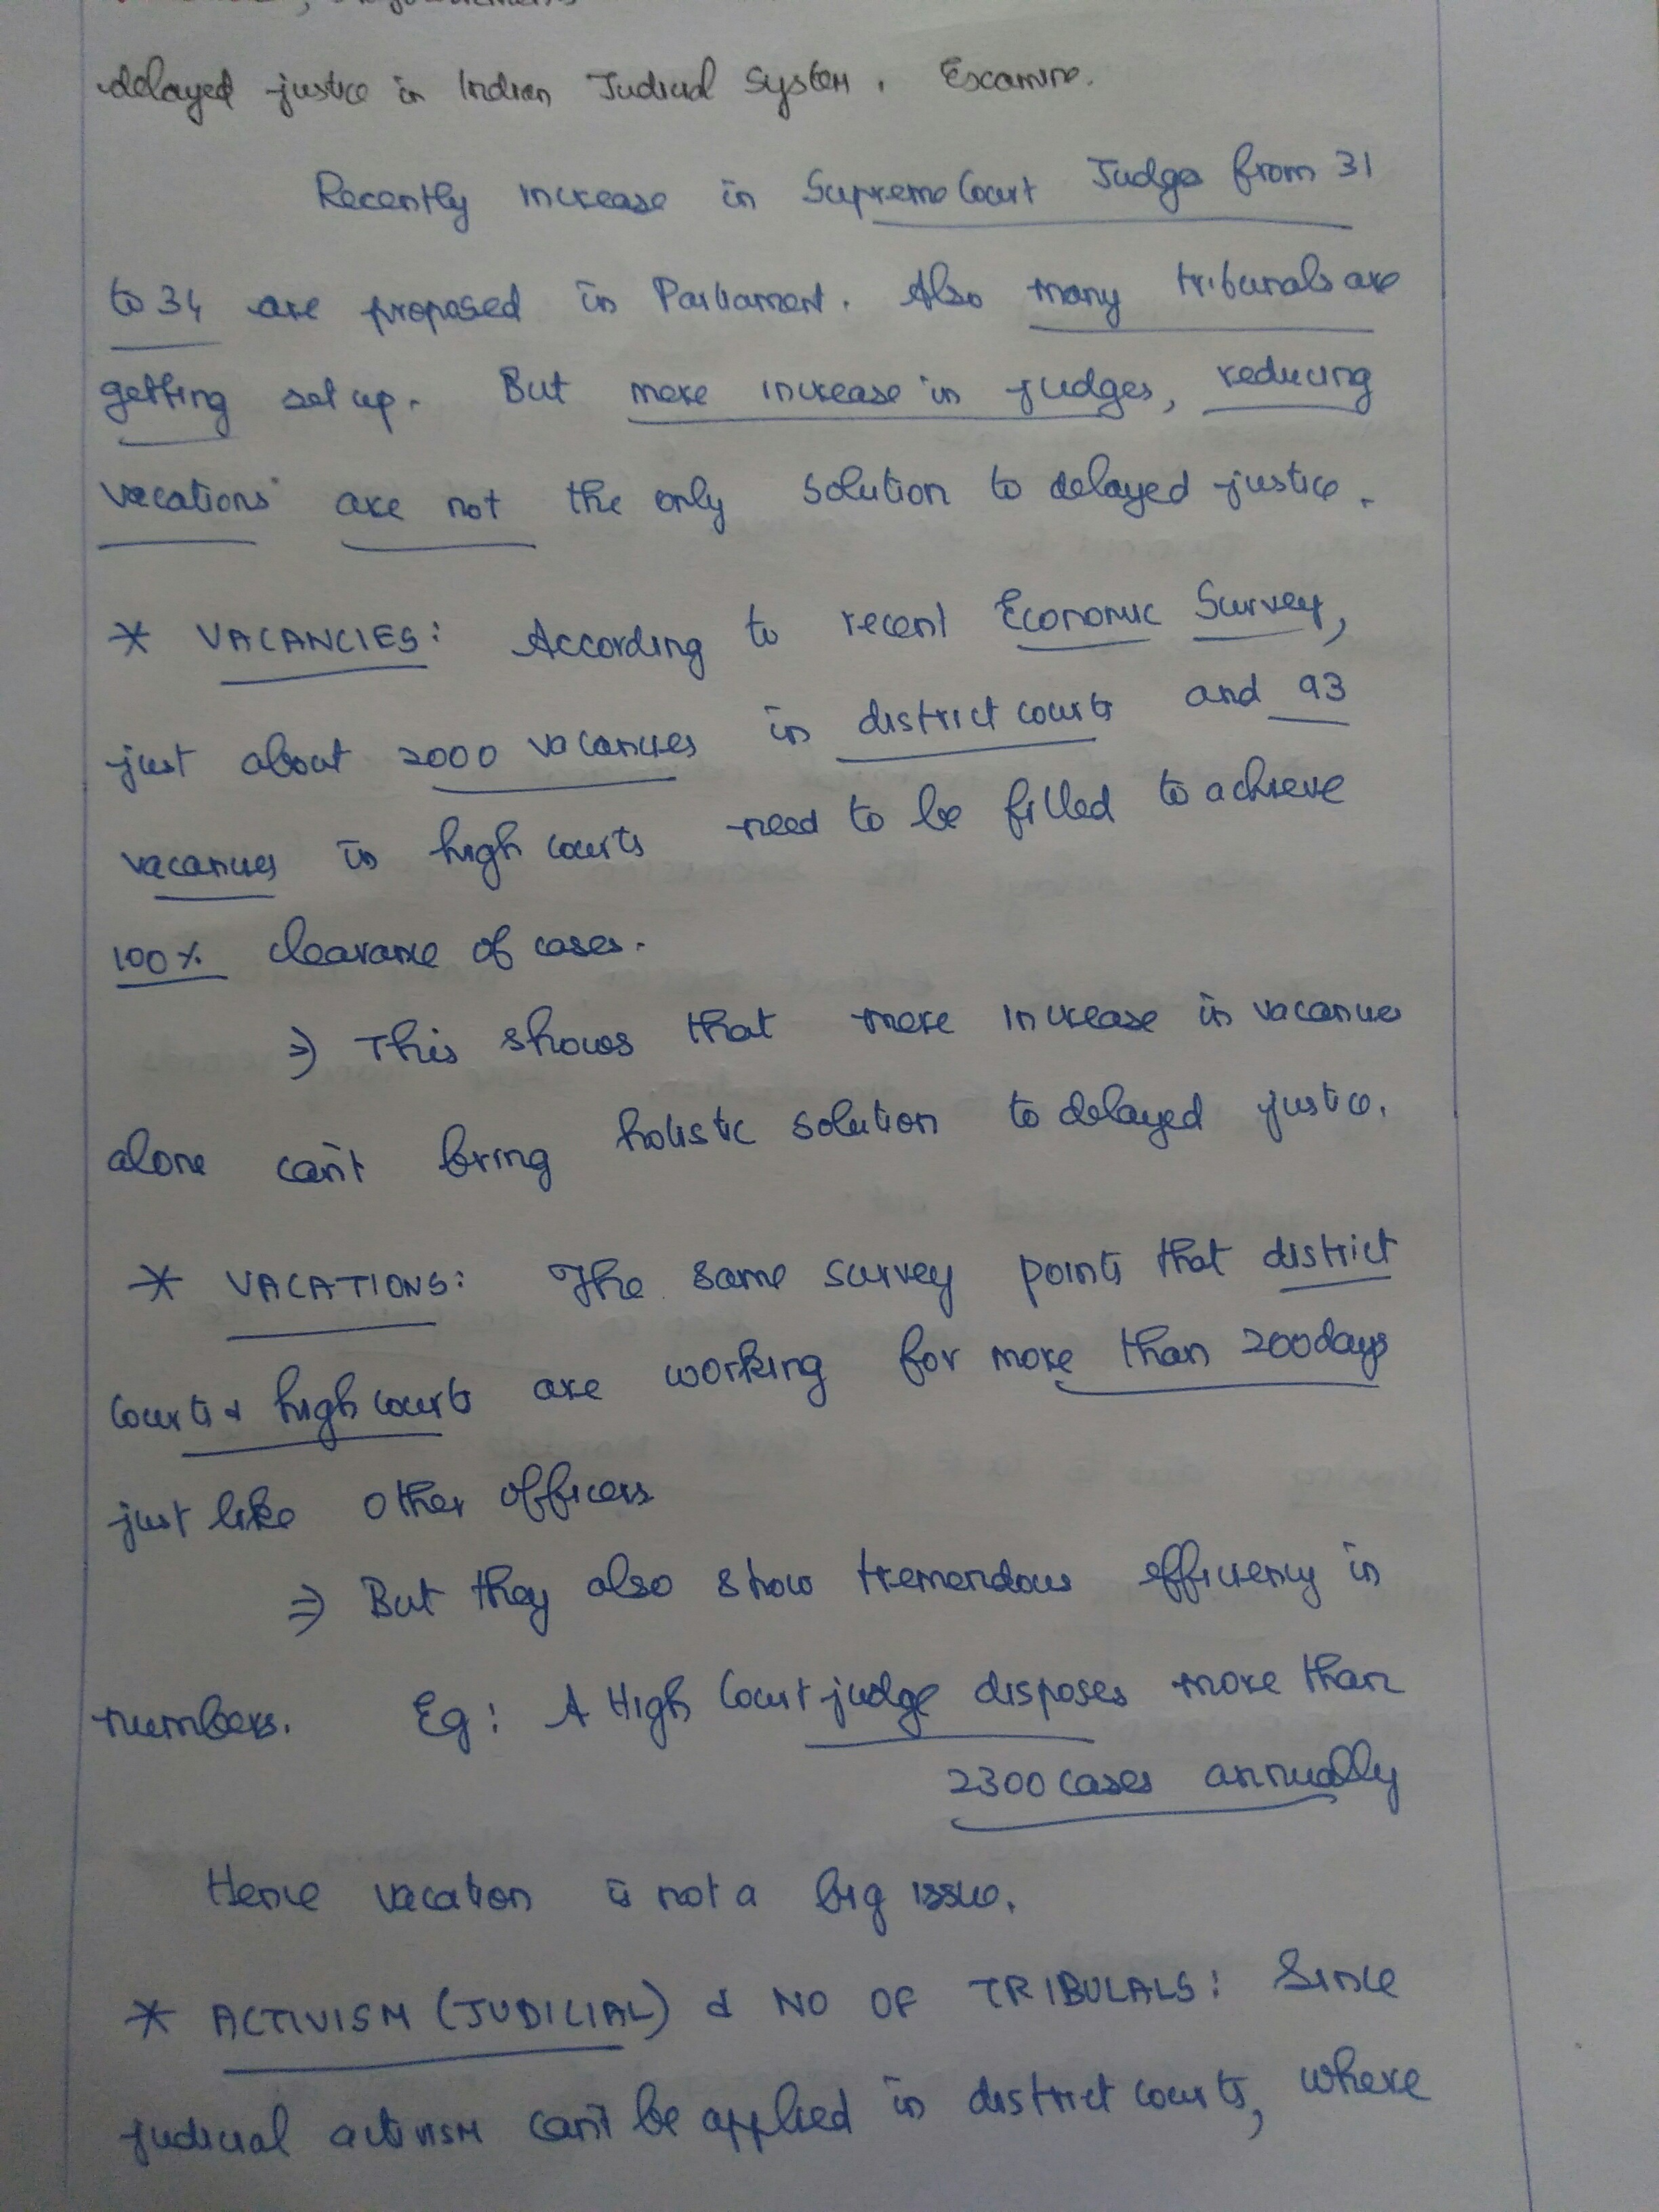 delayed justice in Indian Judicial System. Examine.
Recently increase in Supreme Court Judges from 31
to 34 are proposed in Parliament. Also many tribunals are
getting set up. But mere increase in judges, reducing
vacations are not the only solution to delayed justice.
* VACANCIES: According to recent Economic Survey,
just about 2000 vacancies in district courts and 93
vacancies in high courts need to be filled to achieve
100% clearance of cases.
⇒ This shows that mere increase in vacancies
alone can't bring holistic solution to delayed justice.
* VACATIONS: The same survey points that district
courts & high courts are working for more than 200 days
just like other officers
⇒ But they also show tremendous efficiency in
numbers. Eg: A High Court judge disposes more than
2300 cases annually
Hence vacation is not a big issue.
* ACTIVISM (JUDICIAL) & NO OF TRIBULALS: Since
judicial activism can't be applied in district courts, where